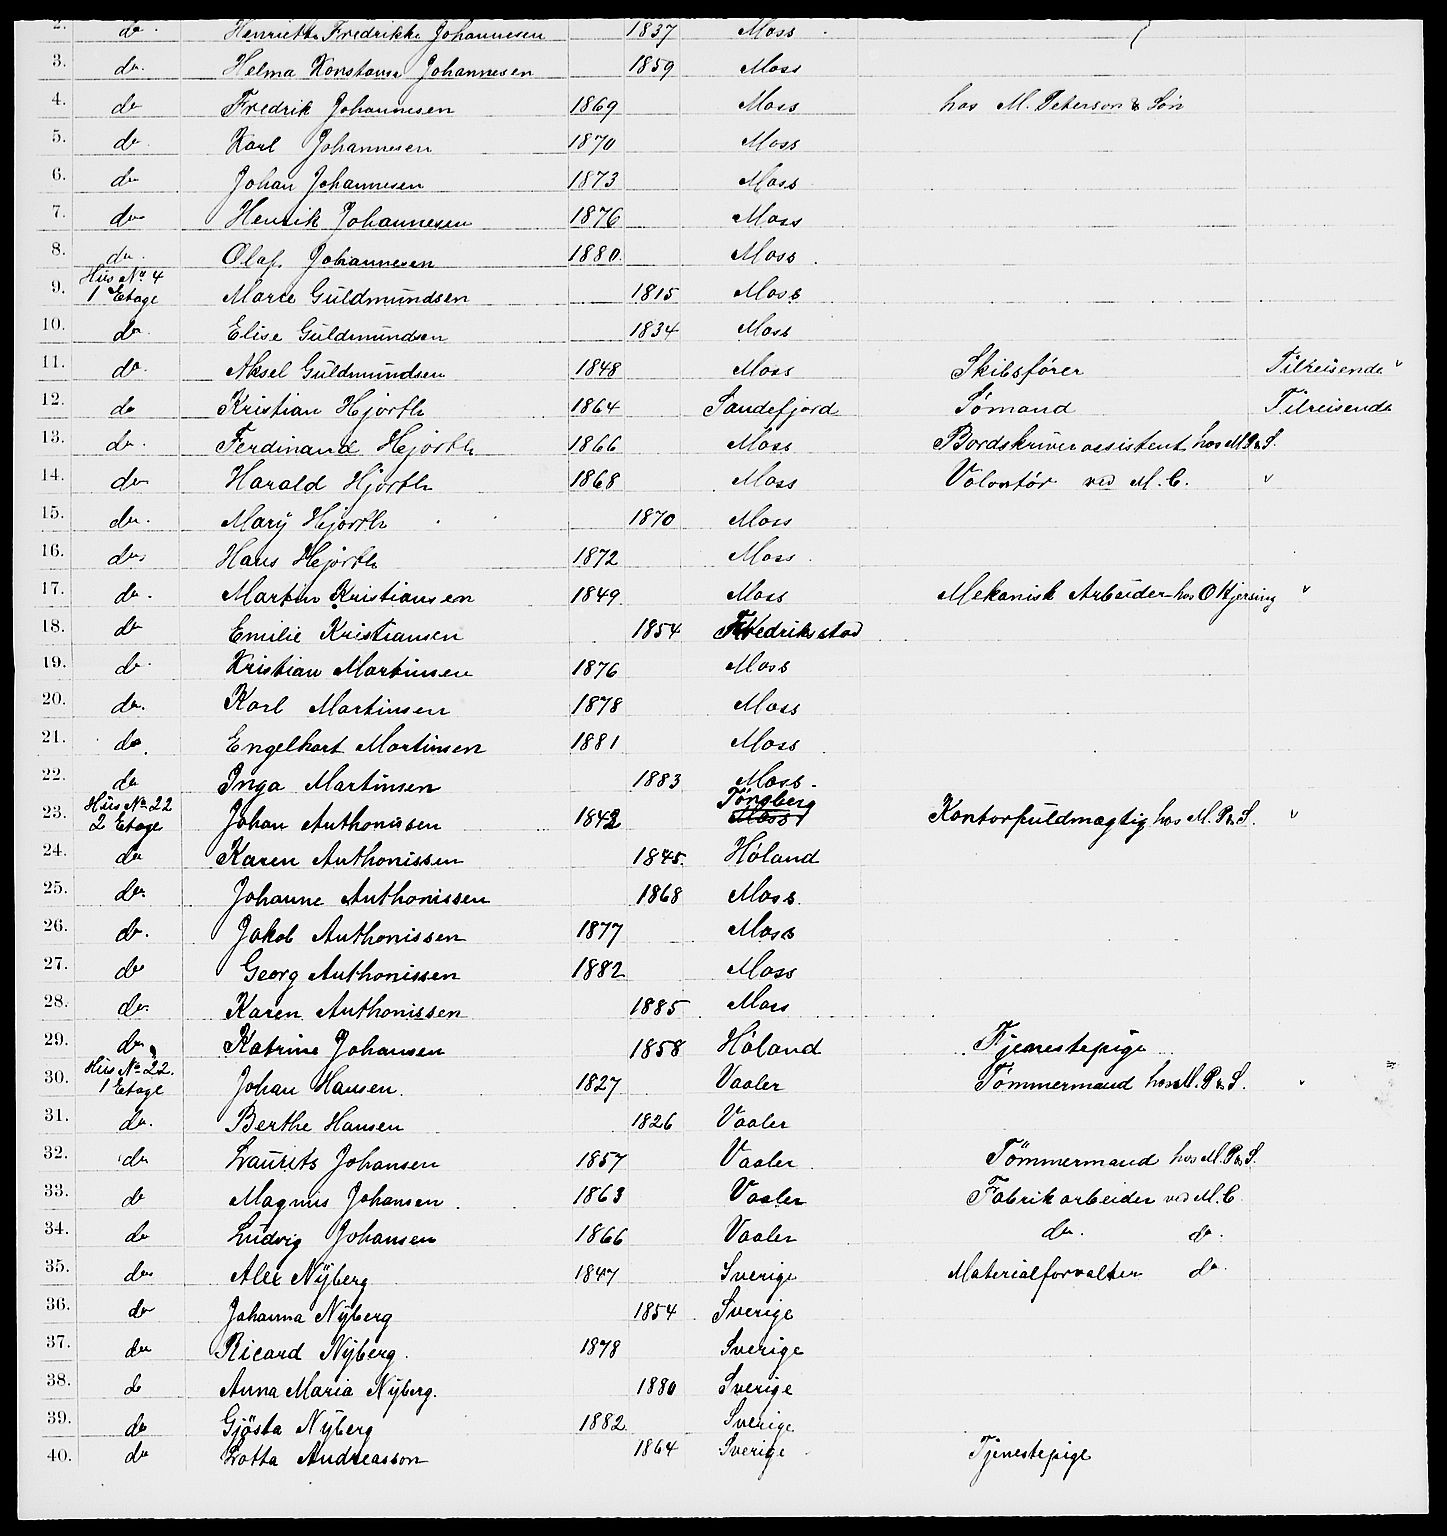 2. do. Henriette Fredrikke Johannesen 1837 Moss
3. do. Helma Konstanse Johannesen 1859 Moss
4. do Fredrik Johannesen 1869 Moss hos M. Peterson & Søn
5. do. Karl Johannesen 1870 Moss
6. do Johan Johannesen 1873 Moss
7. do Henrik Johannesen 1876 Moss
8. do. Olaf Johannesen 1880 Moss
Hüs No 4
9. 1 Etage Marie Güldmündsen 1815 Moss
10. do Elise Güldmündsen 1834 Moss
11. do. Aksel Güldmündsen 1848 Moss Skibsfører Tilreisende
12. do Kristian Hjorth 1864 Sandefjord Sømand Tilreisende
13. do. Ferdinand Hjorth 1866 Moss Bordskriverassistent hos M.P&S.
14. do Harald Hjorth 1868 Moss Volontør ved M. C.
15. do. Mary Hjorth 1870 Moss
16. do Hans Hjorth 1872 Moss
17. do. Martin Kristiansen 1849 Moss Mekanisk Arbeider hos O Kjersing
18. do Emilie Kristiansen 1854 Fredrikstad
19. do Kristian Martinsen 1876 Moss
20. do. Karl Martinsen 1878 Moss
21. do Engelhart Martinsen 1881 Moss
22. do Inga Martinsen 1883 Moss.
Hüs No 22 Tönsberg
23. 2 Etage Johan Anthonissen 1842 Moss Kontorfuldmægtig hos M. P&S.
24. do Karen Anthonissen 1845 Höland
25. do. Johanne Anthonissen 1868 Moss
26. do. Jakob Anthonissen 1877 Moss
27. do Georg Anthonissen 1882 Moss
28. do. Karen Anthonissen 1885 Moss
29. do Katrine Johansen 1858 Höland Tjenestepige
Hüs No 22.
30. 1 Etage Johan Hansen 1827 Vaaler Tömmermand hos M. P&S.
31. do. Berthe Hansen 1826 Vaaler
32. do Laurits Johansen 1857 Vaaler Tömmermand hos M. P&S.
33. do Magnus Johansen 1863 Vaaler Fabrikarbeider ved M. C.
34. do Ludvig Johansen 1866 Vaaler do. do.
35. do Alex Nÿberg 1847 Sverige Materialforvalter do.
36. do Johanna Nÿberg 1854 Sverige
37. do Ricard Nÿberg 1878 Sverige
38. do Anna Maria Nÿberg. 1880 Sverige
39. do Gjösta Nÿberg 1882 Sverige
40. do Lotta Andreasson 1864 Sverige Tjenestepige